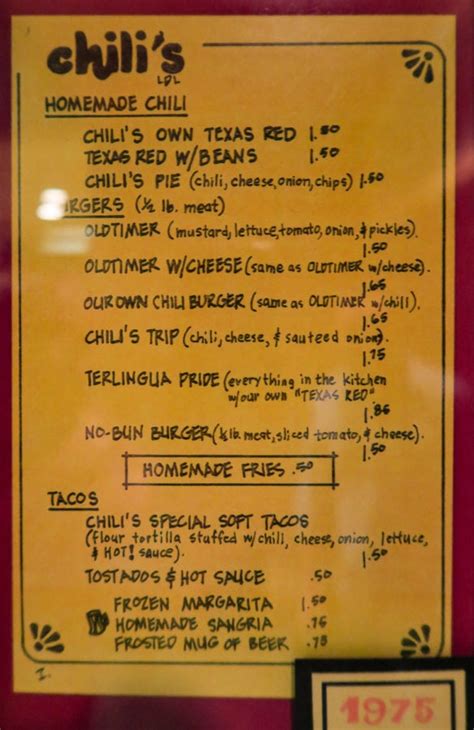 chili's
LDL
HOMEMADE CHILI
CHILI'S OWN TEXAS RED 1.50
TEXAS RED W/BEANS 1.50
CHILI'S PIE (chili, cheese, onion, chips) 1.50
RGERS (½ lb. meat)
OLDTIMER (mustard, lettuce, tomato, onion, & pickles).
1.50
OLDTIMER W/CHEESE (same as OLDTIMER w/cheese).
1.65
OUR OWN CHILI BURGER (same as OLDTIMER w/chili).
1.65
CHILI'S TRIP (chili, cheese, & sauteed onion).
1.75
TERLINGUA PRIDE (everything in the kitchen
w/our own "TEXAS RED"
1.85
NO-BUN BURGER (½ lb. meat, sliced tomato, & cheese).
1.50
HOMEMADE FRIES .50
TACOS
CHILI'S SPECIAL SOFT TACOS
(flour tortilla stuffed w/chili, cheese, onion, lettuce,
& HOT! sauce).
1.50
TOSTADOS & HOT SAUCE .50
FROZEN MARGARITA 1.50
HOMEMADE SANGRIA .75
FROSTED MUG OF BEER .75
I.
1975